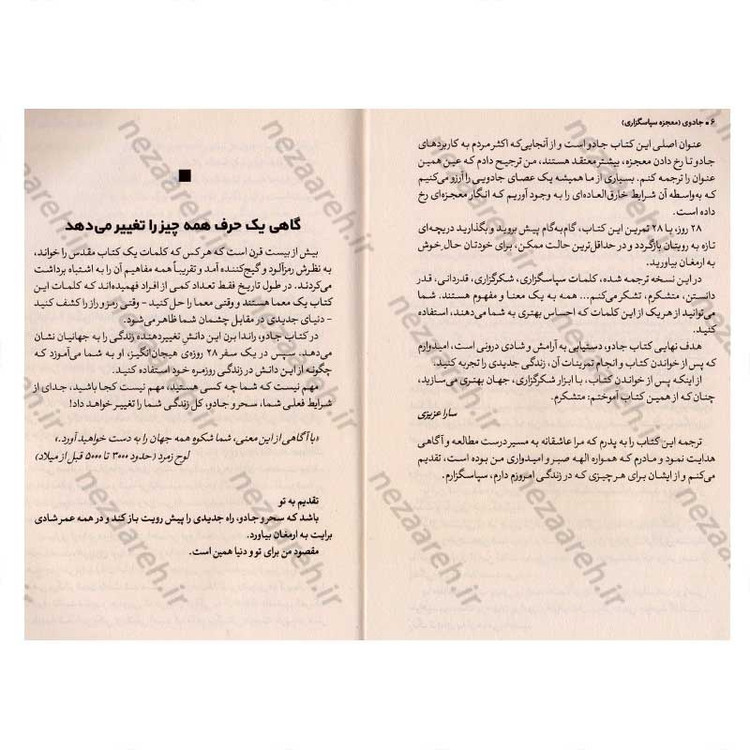 ۶ ▪ جادوی (معجزه سپاسگزاری)
عنوان اصلی این کتاب جادو است و از آنجایی‌که اکثر مردم به کاربردهای
جادو تا رخ دادن معجزه، بیشتر معتقد هستند، من ترجیح دادم که عین همین
عنوان را ترجمه کنم. بسیاری از ما همیشه یک عصای جادویی را آرزو می‌کنیم
که به‌واسطه آن شرایط خارق‌العاده‌ای را به وجود آوریم که انگار معجزه‌ای رخ
داده است.
۲۸ روز، با ۲۸ تمرین این کتاب، گام‌به‌گام پیش بروید و بگذارید دریچه‌ای
تازه به رویتان بازگردد و در حداقل‌ترین حالت ممکن، برای خودتان حال خوش
به ارمغان بیاورید.
در این نسخه ترجمه شده، کلمات سپاسگزاری، شکرگزاری، قدردانی، قدر
دانستن، متشکرم، تشکر می‌کنم... همه به یک معنا و مفهوم هستند. شما
می‌توانید از هر یک از این کلمات که احساس بهتری به شما می‌دهند، استفاده
کنید.
هدف نهایی کتاب جادو، دستیابی به آرامش و شادی درونی است، امیدوارم
که پس از خواندن کتاب و انجام تمرینات آن، زندگی جدیدی را تجربه کنید.
از اینکه پس از خواندن کتاب، با ابزار شکرگزاری، جهان بهتری می‌سازید،
چنان که از همین کتاب آموختم: متشکرم.
سارا عزیزی
ترجمه این کتاب را به پدرم که مرا عاشقانه به مسیر درست مطالعه و آگاهی
هدایت نمود و مادرم که همواره الهه صبر و امیدواری من بوده است، تقدیم
می‌کنم و از ایشان برای هر چیزی که در زندگی امروزم دارم، سپاسگزارم.
گاهی یک حرف همه چیز را تغییر می‌دهد
بیش از بیست قرن است که هر کس که کلمات یک کتاب مقدس را خواند،
به نظرش رمزآلود و گیج‌کننده آمد و تقریباً همه مفاهیم آن را به اشتباه برداشت
می‌کردند. در طول تاریخ فقط تعداد کمی از افراد فهمیده‌اند که کلمات این
کتاب یک معما هستند و وقتی معما را حل کنید - وقتی رمز و راز را کشف کنید
- دنیای جدیدی در مقابل چشمان شما ظاهر می‌شود.
در کتاب جادو، راندا برن این دانش تغییردهنده زندگی را به جهانیان نشان
می‌دهد. سپس در یک سفر ۲۸ روزه‌ی هیجان‌انگیز، او به شما می‌آموزد که
چگونه از این دانش در زندگی روزمره خود استفاده کنید.
مهم نیست که شما چه کسی هستید، مهم نیست کجا باشید، جدای از
شرایط فعلی شما، سحر و جادو، کل زندگی شما را تغییر خواهد داد!
«با آگاهی از این معنی، شما شکوه همه جهان را به دست خواهید آورد.»
لوح زمرد (حدود ۳۰۰۰ تا ۵۰۰۰ قبل از میلاد)
تقدیم به تو
باشد که سحر و جادو، راه جدیدی را پیش رویت باز کند و در همه عمر شادی
برایت به ارمغان بیاورد.
مقصود من برای تو و دنیا همین است.
nezaareh.ir
nezaareh.ir
nezaareh.ir
nezaareh.ir
nezaareh.ir
nezaareh.ir
nezaareh.ir
nezaareh.ir
nezaareh.ir
nezaareh.ir
nezaareh.ir
nezaareh.ir